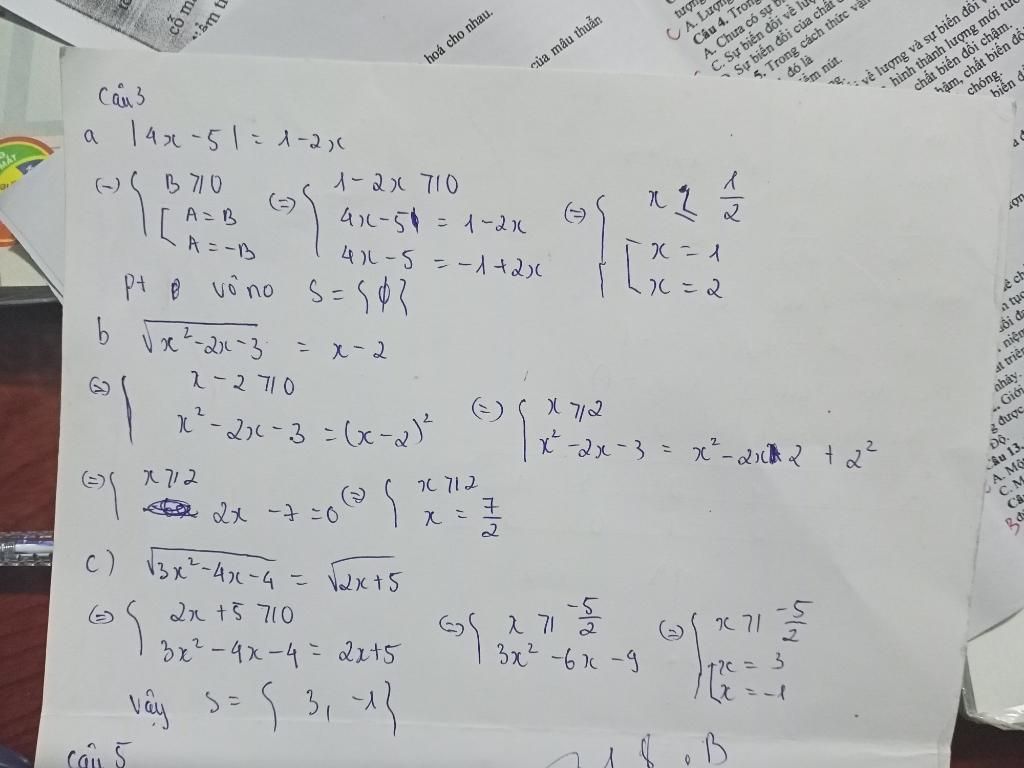 cỗ má
hoá cho nhau.
của mâu thuẫn
tượng
A. Lượng
Câu 4. Trong
A. Chưa có sự bi
C. Sự biến đổi về lượ
D. Sự biến đổi của chất c
5. Trong cách thức vận
đó là
về lượng và sự biến đổi v
hình thành lượng mới tư
chất biến đổi chậm.
hậm, chất biến đổ
chóng.
biến đ
Câu 3
a |4x - 5| = 1 - 2x
(=) { B ⩾ 0 [ A = B A = -B (=) { 1 - 2x ⩾ 0 4x - 5 = 1 - 2x 4x - 5 = -1 + 2x (=) { x ≤ 1/2 [ x = 1 x = 2
pt vô no S = {ϕ}
b √(x² - 2x - 3) = x - 2
(=) { x - 2 ⩾ 0 x² - 2x - 3 = (x - 2)² (=) { x ⩾ 2 x² - 2x - 3 = x² - 2x 2 + 2²
(=) { x ⩾ 2 2x - 7 = 0 (=) { x ⩾ 2 x = 7/2
c) √(3x² - 4x - 4) = √(2x + 5)
(=) { 2x + 5 ⩾ 0 3x² - 4x - 4 = 2x + 5 (=) { x ⩾ -5/2 3x² - 6x - 9 (=) { x ⩾ -5/2 [ x = 3 x = -1
vậy S = { 3, -1 }
Câu 5
niệm
nhảy.
Giới
được
Độ.
Câu 13.
A. Mộ
C. M